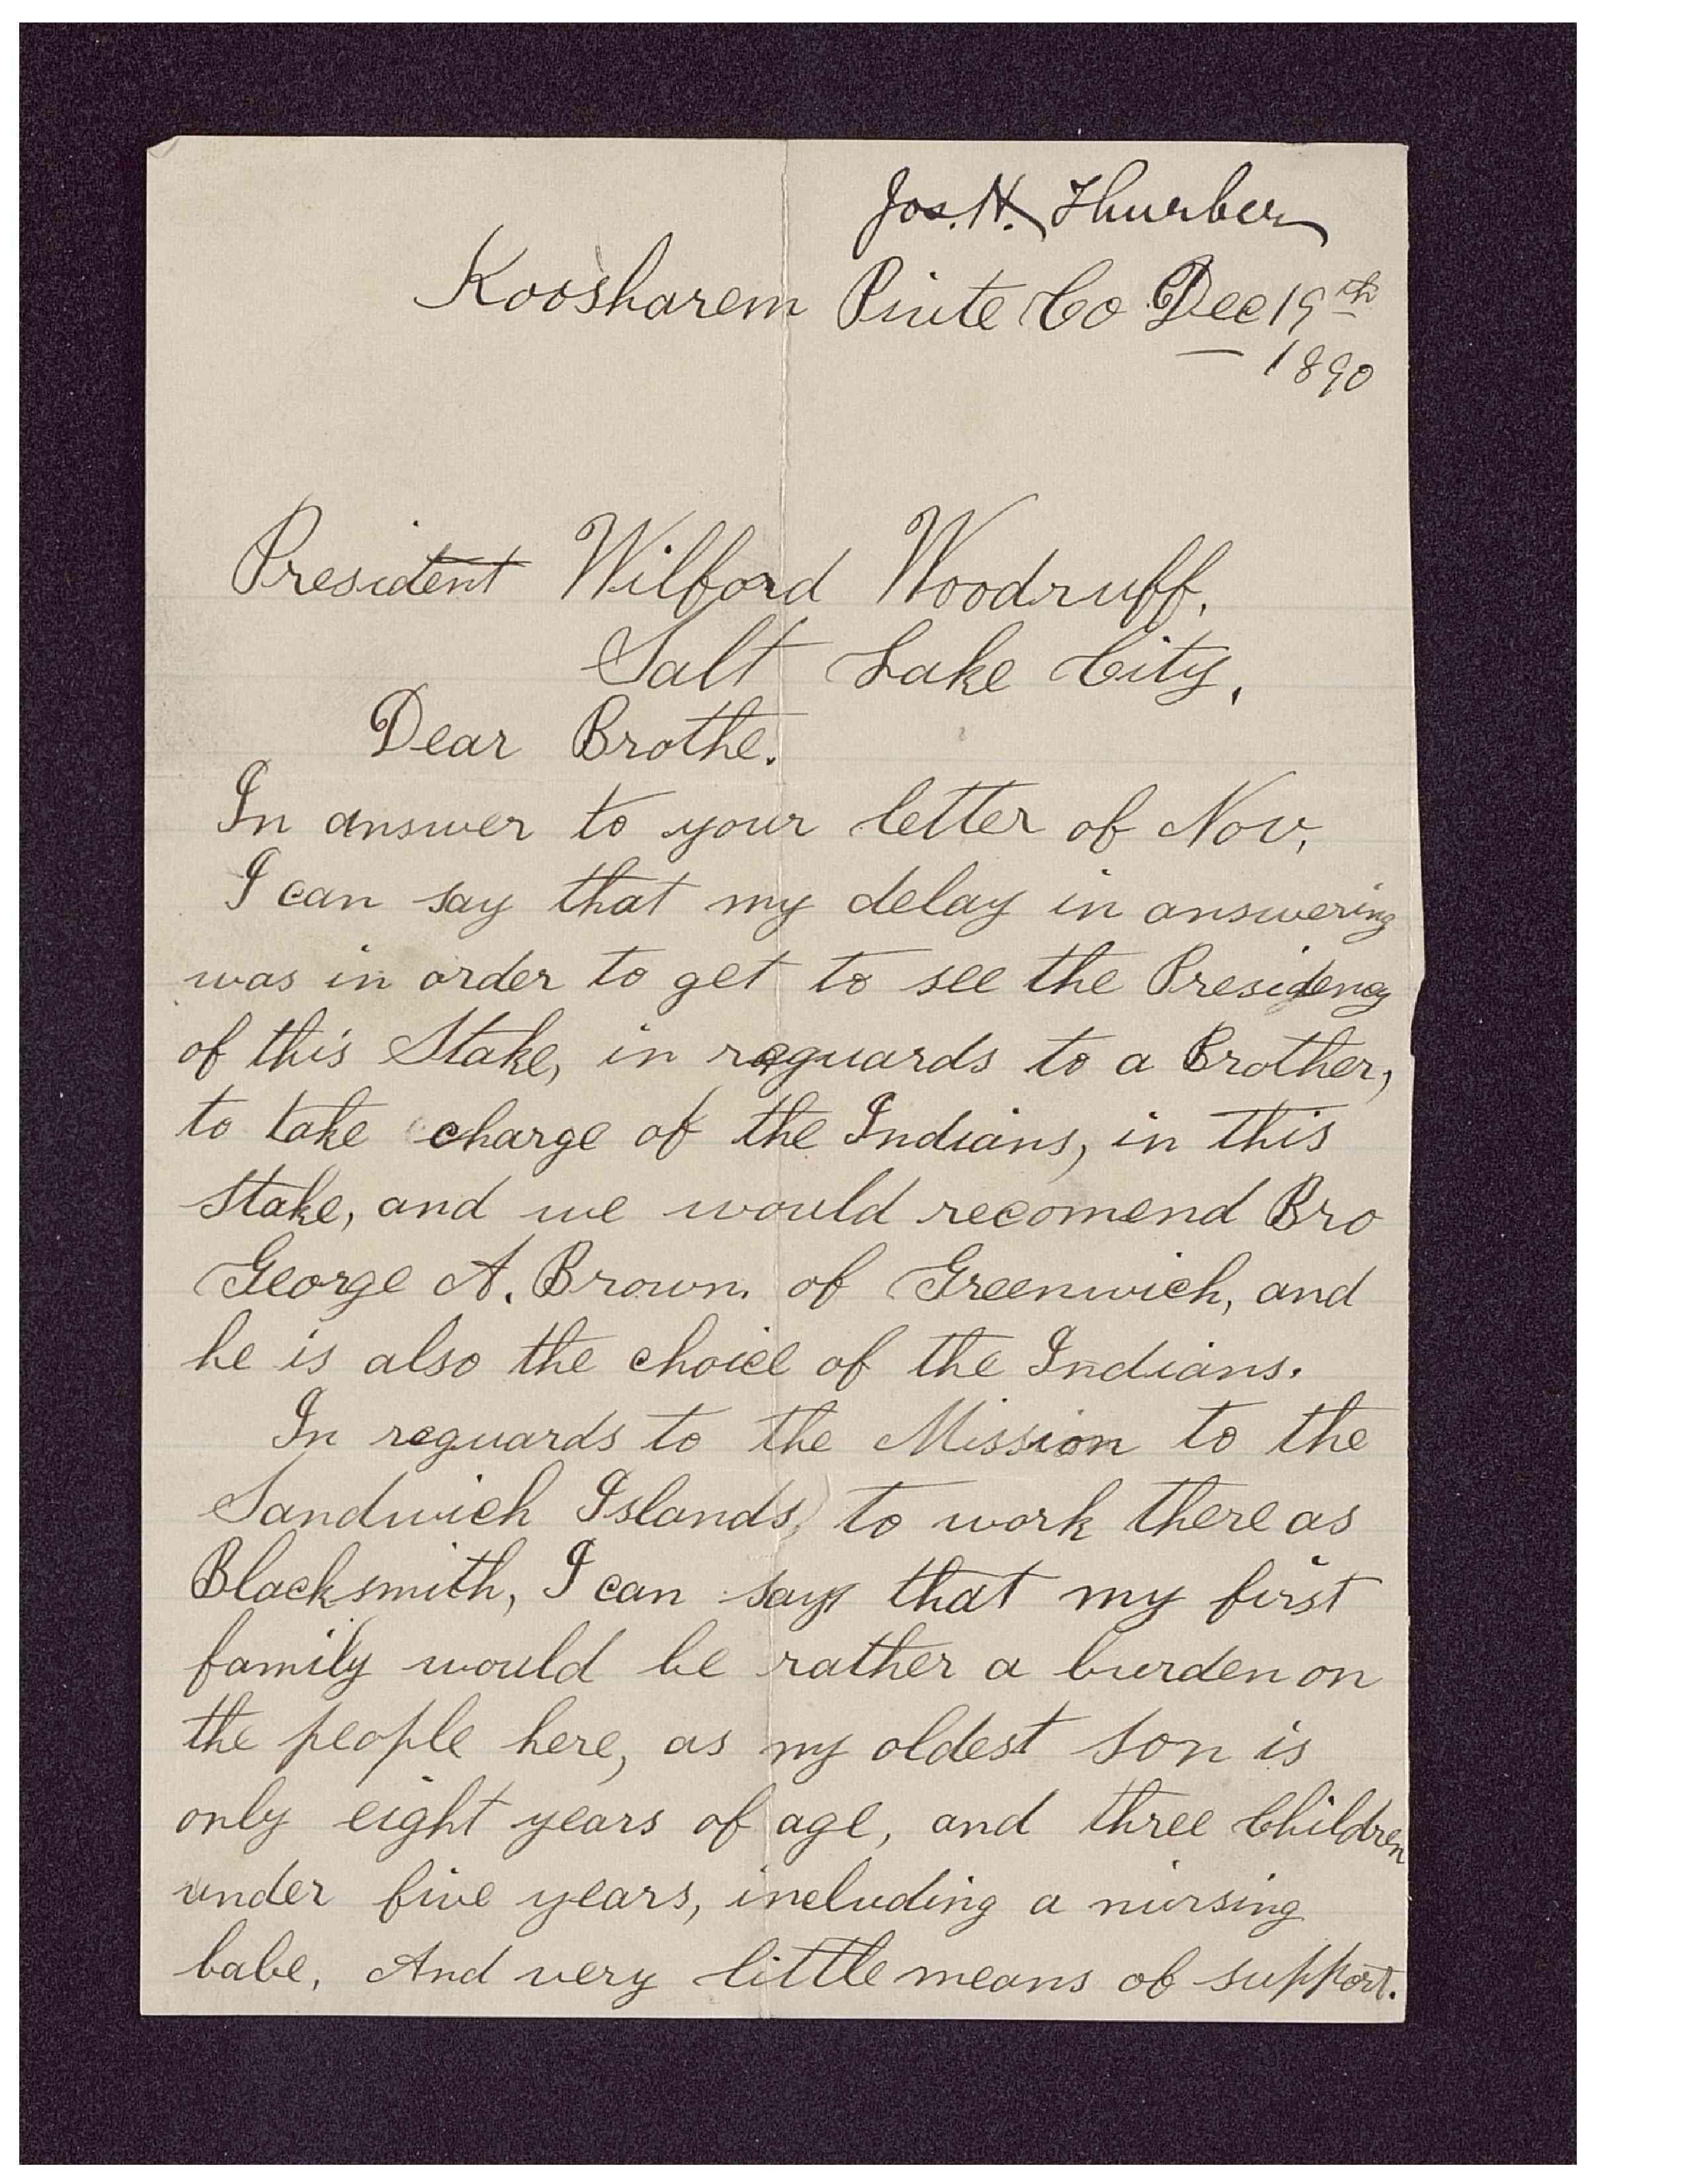 Jos. H. Thurber
Koosharem Piute Co Dec 19th
1890
President Wilford Woodruff.
Salt Lake City,
Dear Brothe.
In answer to your letter of Nov,
I can say that my delay in answering
was in order to get to see the Presidency
of this Stake, in reguards to a Brother,
to take charge of the Indians, in this
Stake, and we would recomend Bro
George A. Brown. of Greenwich, and
he is also the choice of the Indians.
In reguards to the Mission to the
Sandwich Islands, to work there as
Blacksmith, I can say that my first
family would be rather a burden on
the people here, as my oldest son is
only eight years of age, and three Children
under five years, including a nursing
babe. And very little means of support.